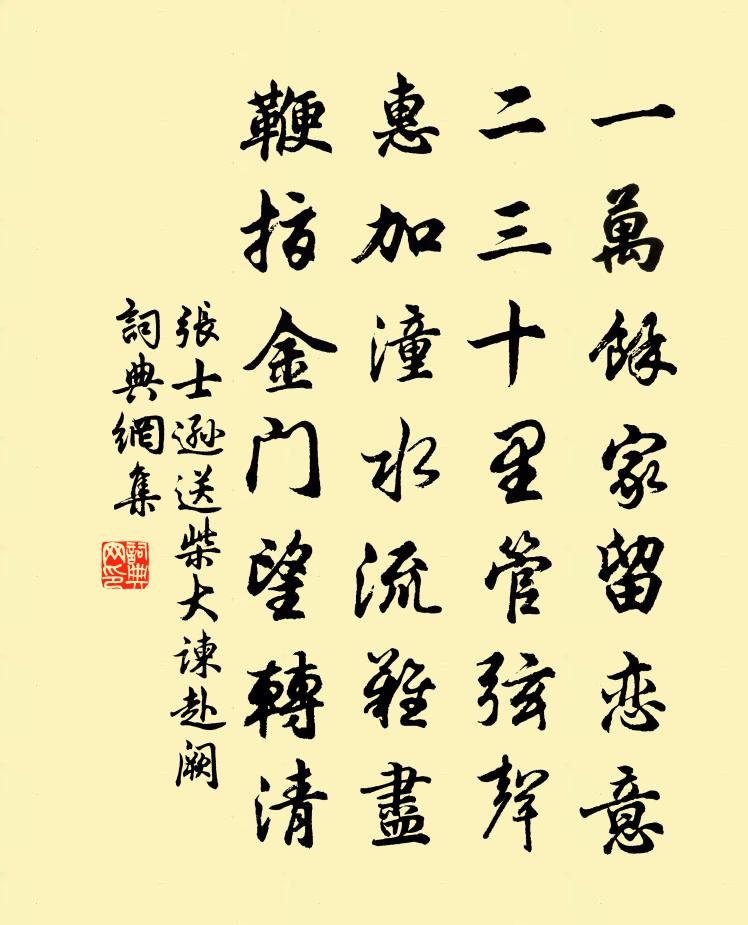 一萬餘家留恋意
二三十里管弦聲
惠加潼水流難盡
鞭指金门望轉清
張士遜送柴大諫赴阙
詞典網集
詞典网印